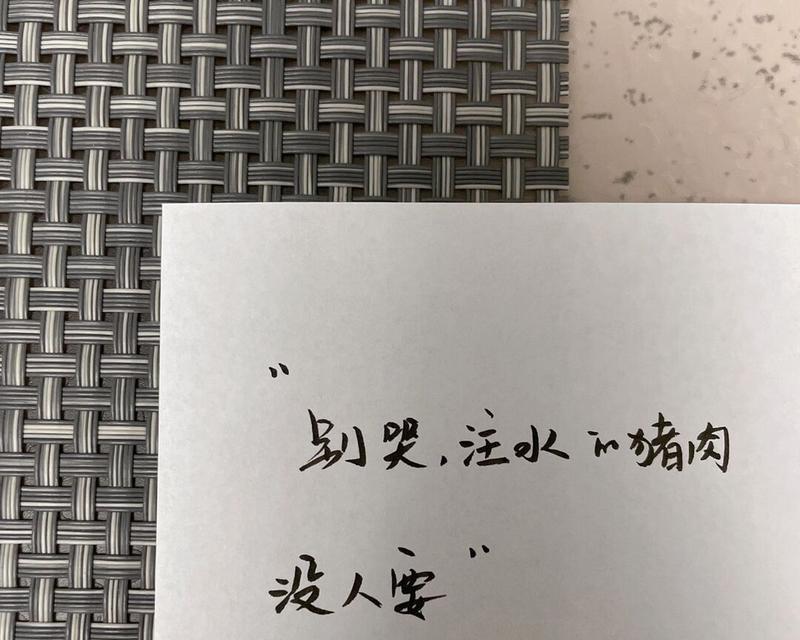 "别哭,注水的猪肉
没人要"